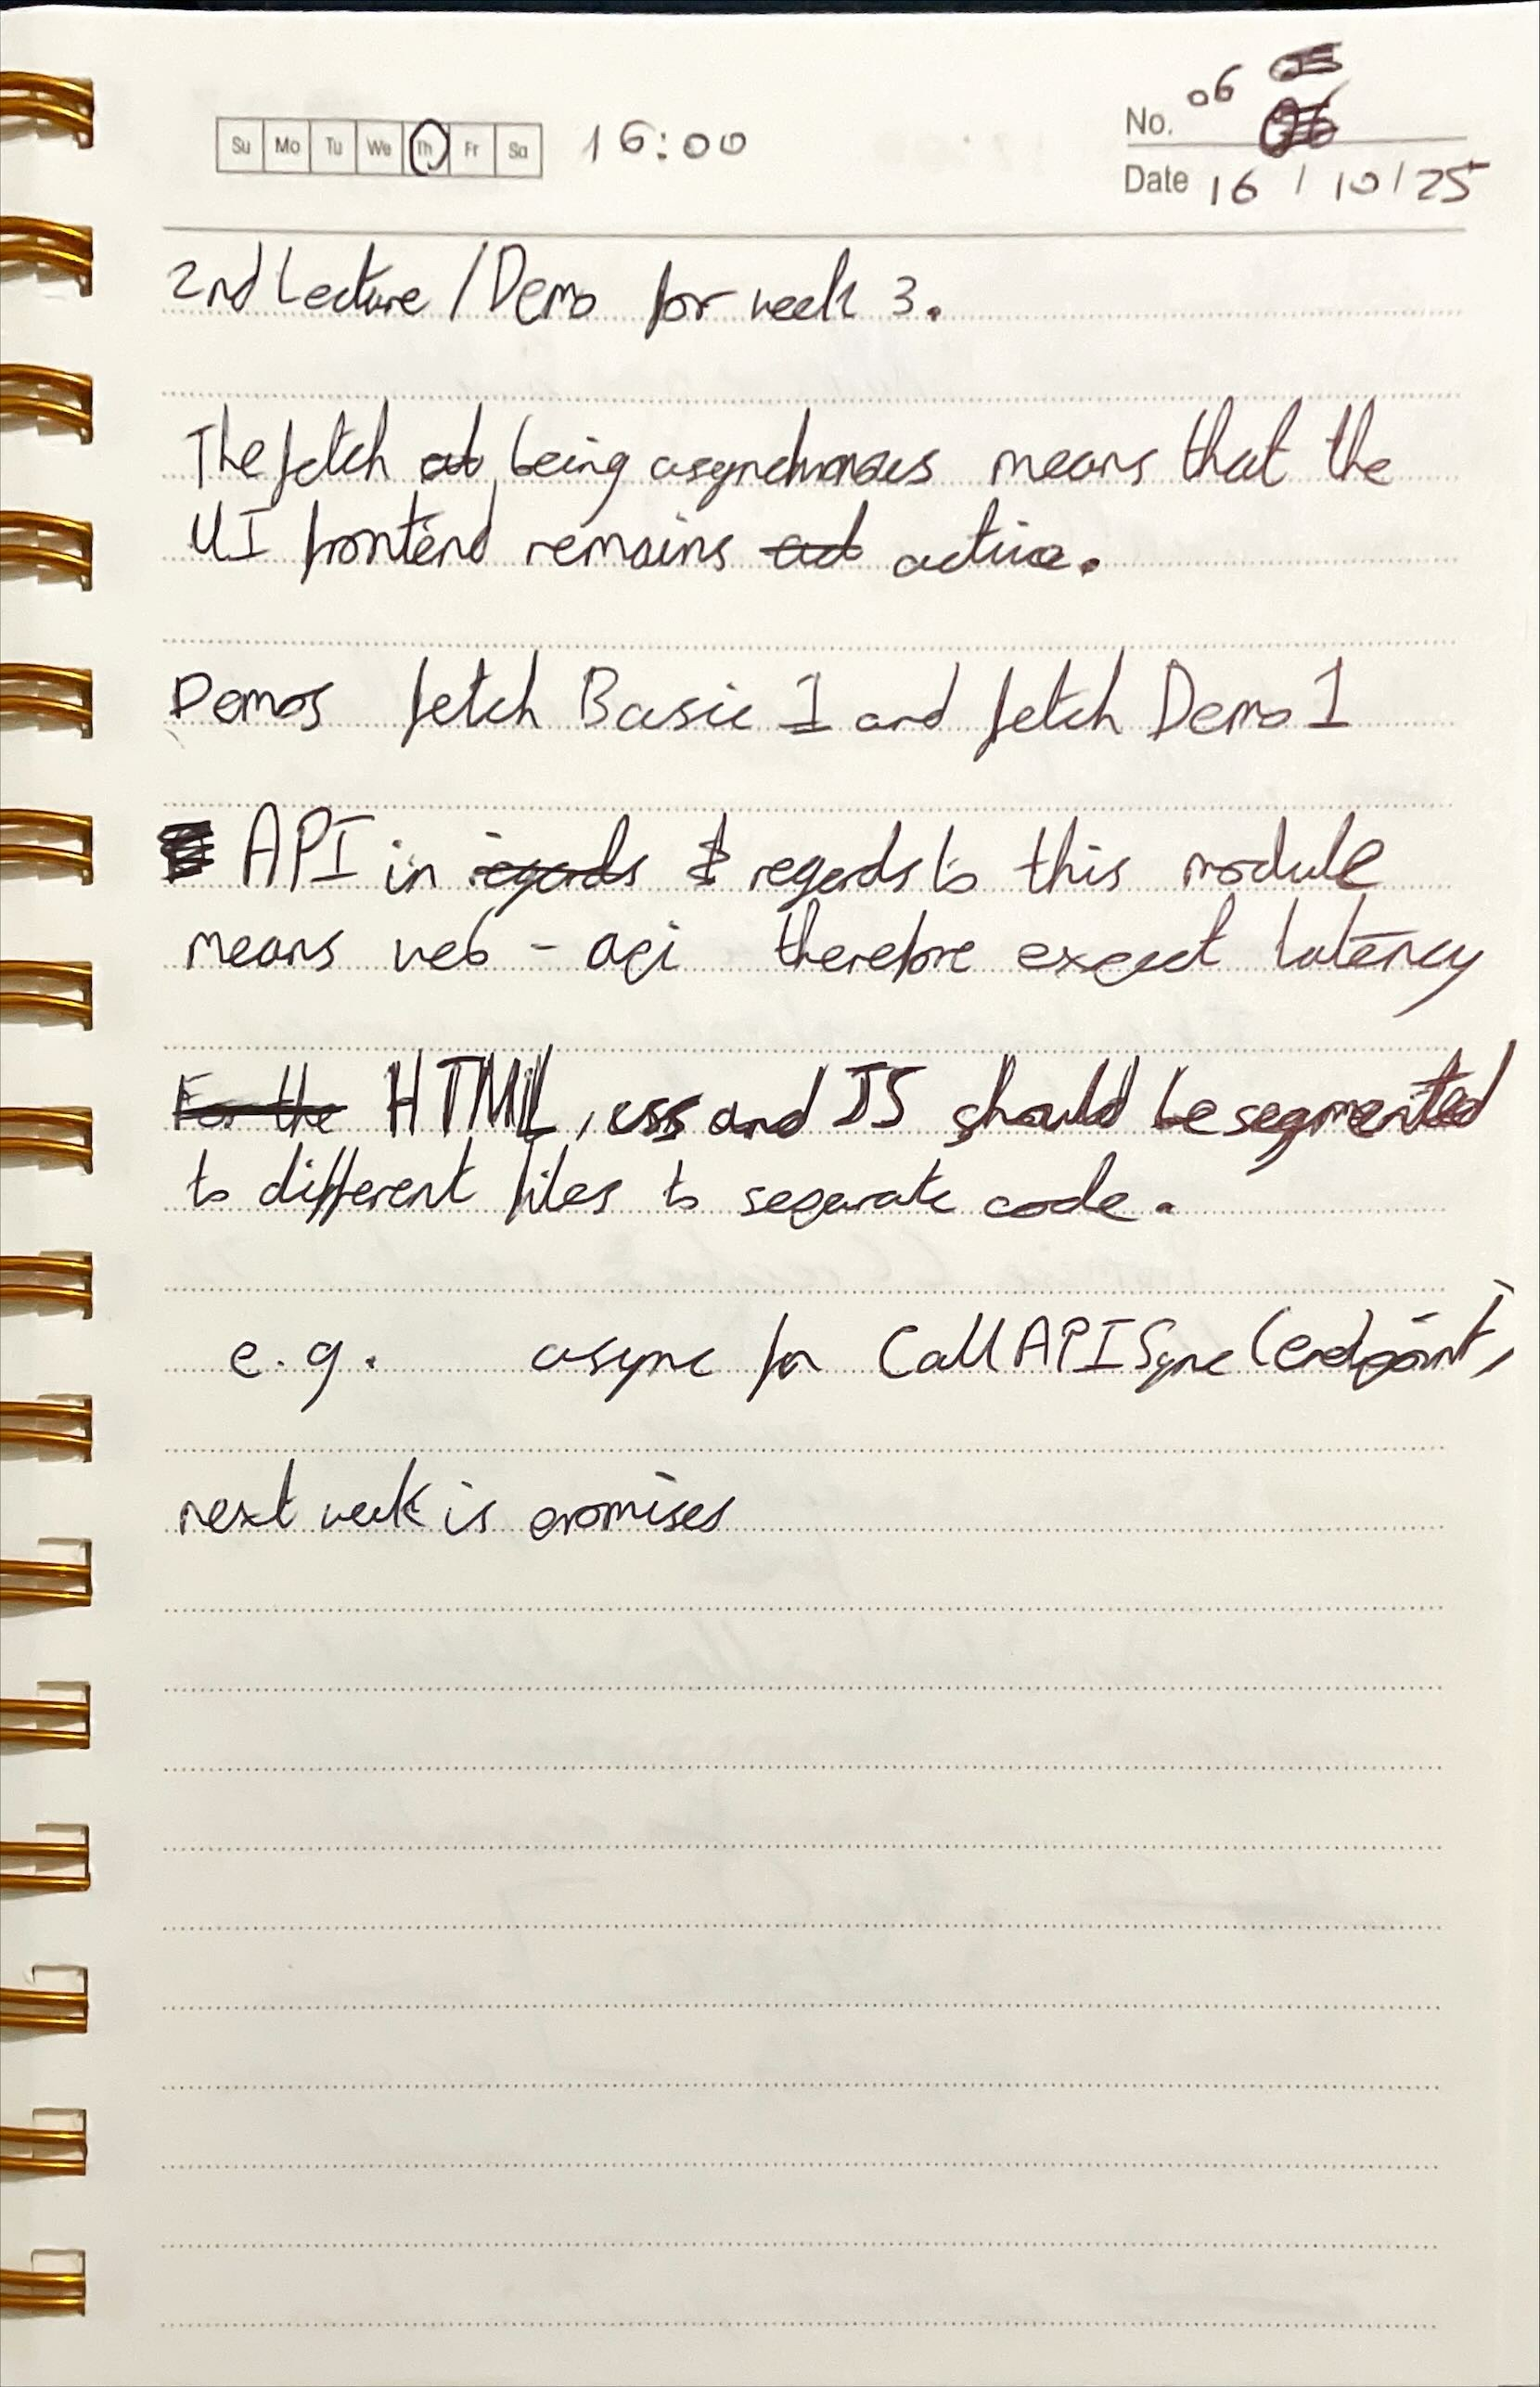 Su Mo Tu We Th Fr Sa 16:00
No. 06
Date 16 / 10 / 25
2nd Lecture / Demo for week 3.
The fetch being asynchronous means that the
UI frontend remains active.
Demos fetch Basic 1 and fetch Demo 1
API in regards to this module
means web - api therefore expect latency
For the HTML, css and JS should be segmented
to different files to separate code.
e.g. async fn CallAPISync (endpoint,
next week is promises